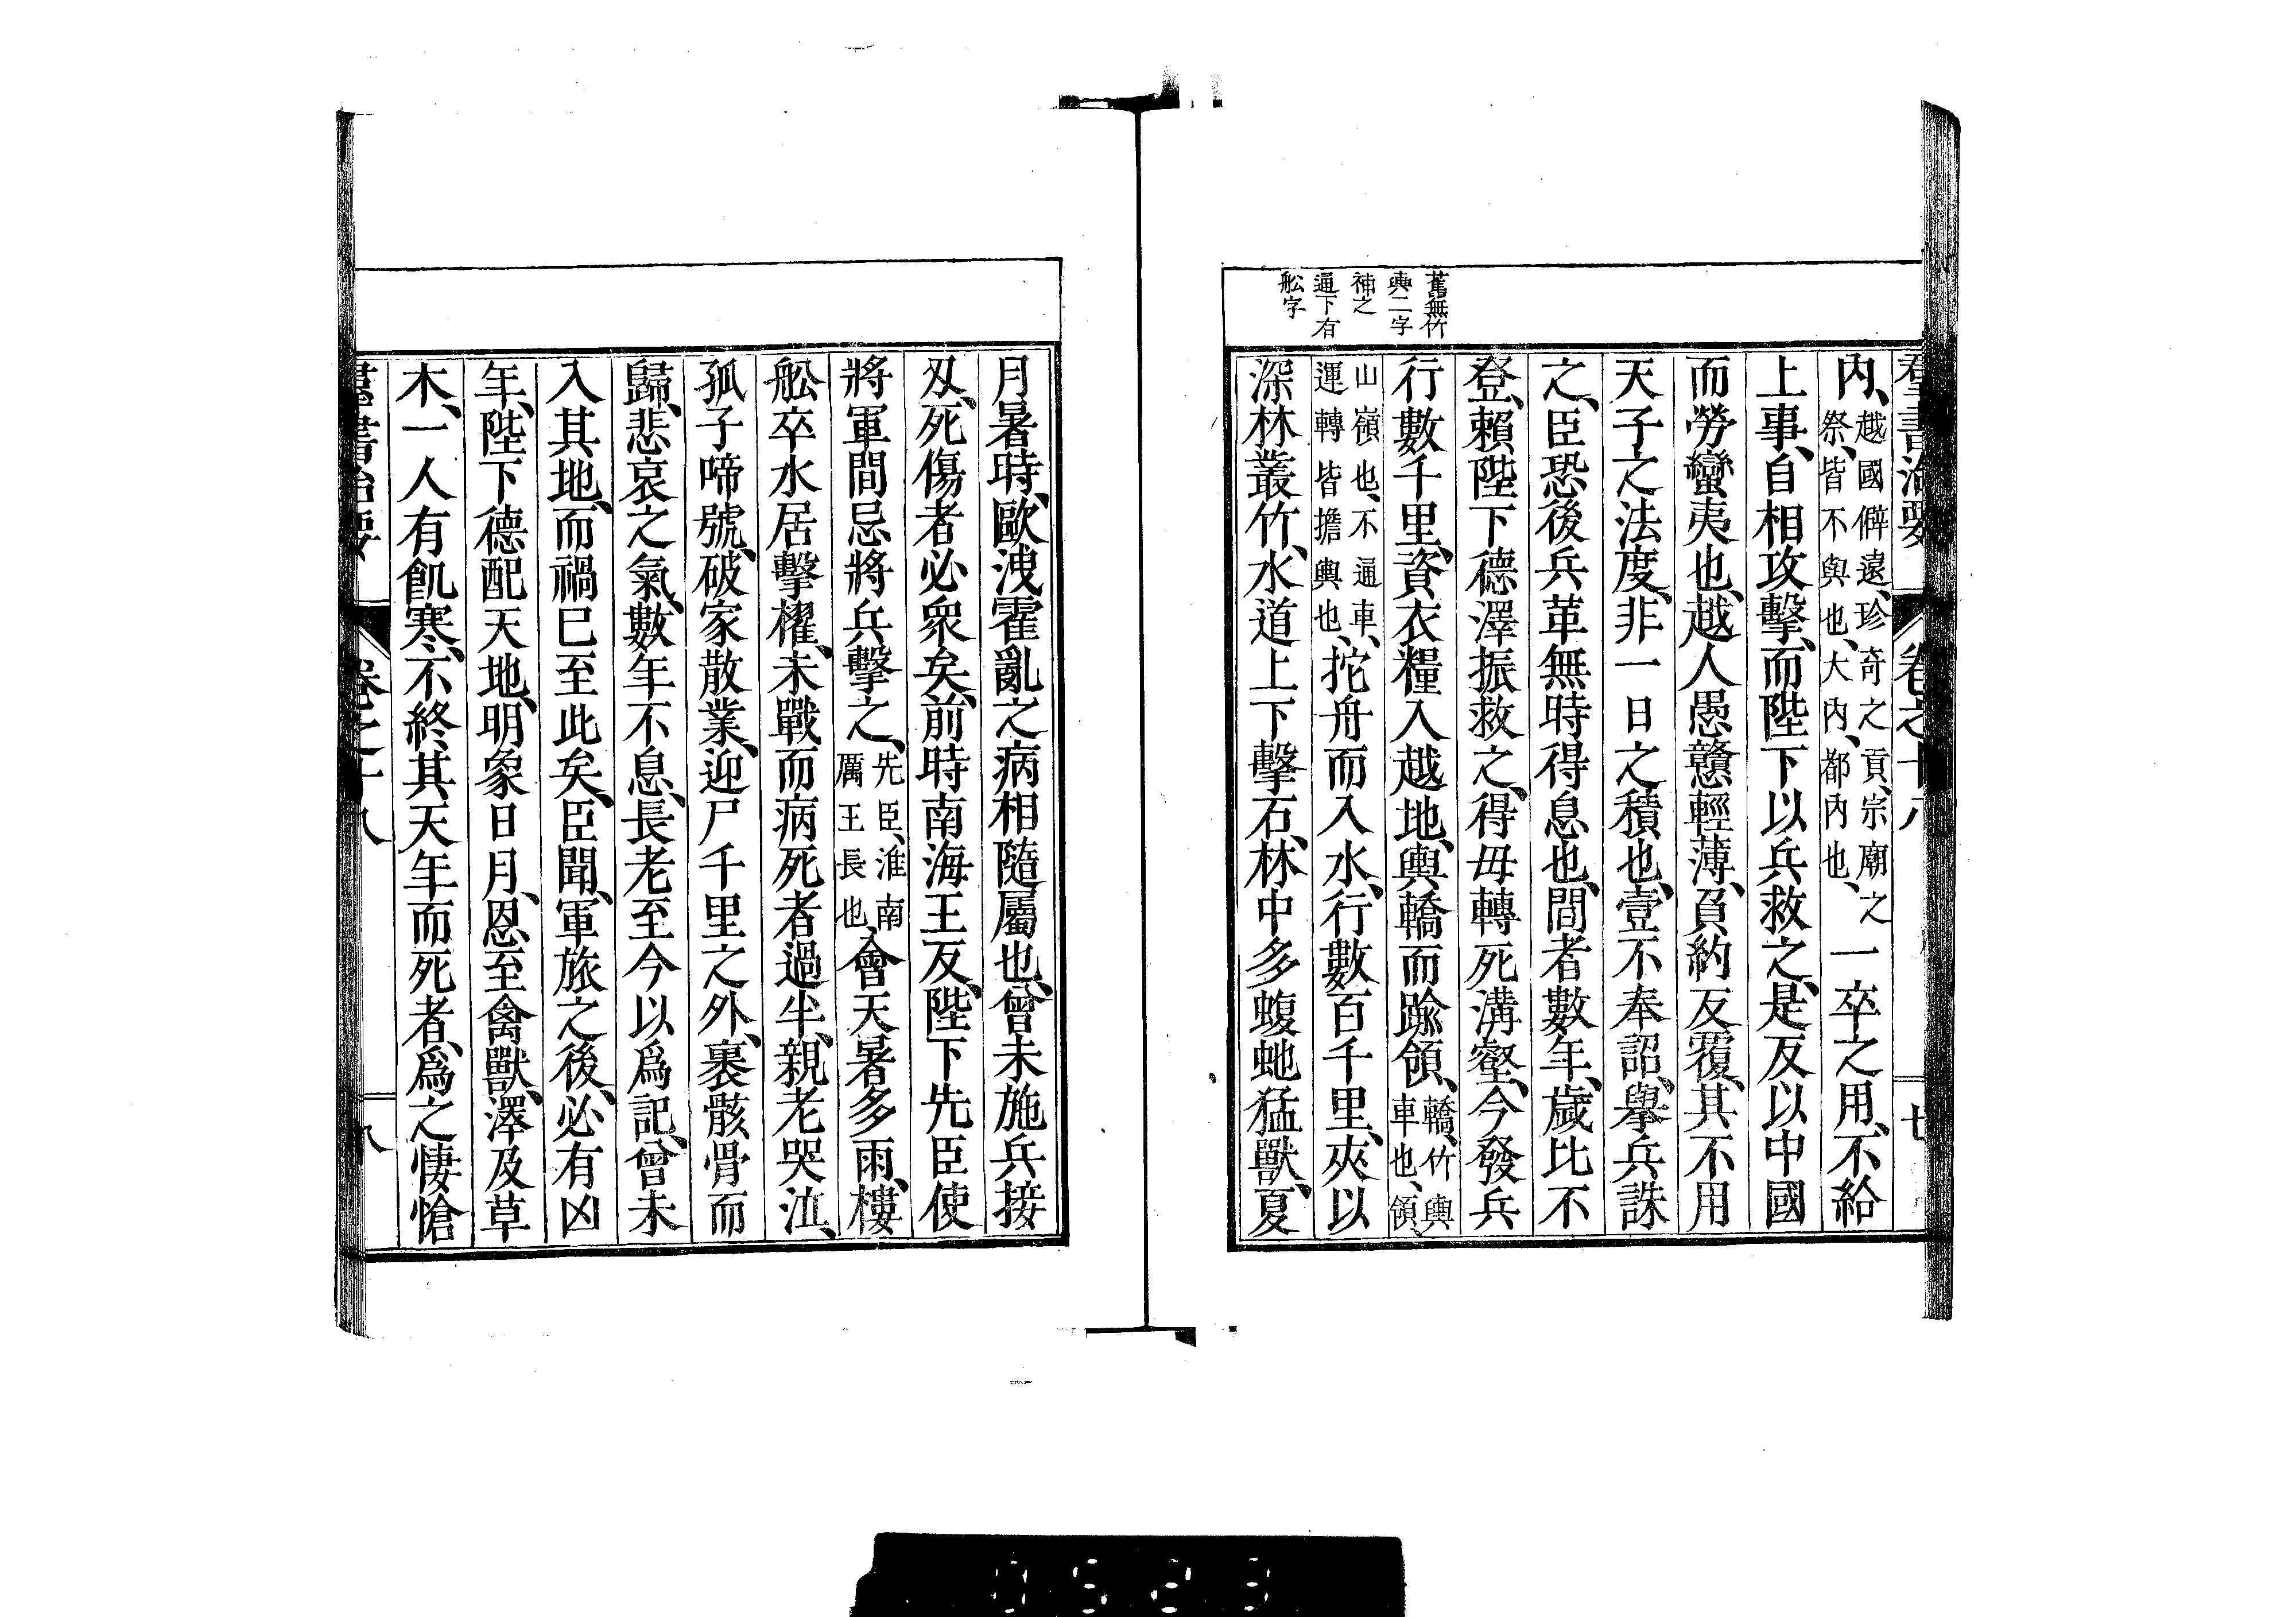 舊無竹
輿二字
補之
逼下有
舩字
羣書治要 卷之十八 七
內、越國僻遠、珍奇之貢、宗廟之祭、皆不與也、大內、都內也、一卒之用、不給
上事、自相攻擊、而陛下以兵救之、是反以中國
而勞蠻夷也、越人愚戇輕薄、負約反覆、其不用
天子之法度、非一日之積也、壹不奉詔、舉兵誅
之、臣恐後兵革無時得息也、間者數年、歲比不
登、賴陛下德澤振救之、得毋轉死溝壑、今發兵
行數千里、資衣糧入越地、輿轎而踰領、轎、竹輿車也、領、
山嶺也、不通車、運轉皆擔輿也、拕舟而入水、行數百千里、夾以
深林叢竹、水道上下擊石、林中多蝮虵猛獸、夏
月暑時、歐洩霍亂之病相隨屬也、曾未施兵接
刄、死傷者必衆矣、前時南海王反、陛下先臣使
將軍間忌將兵擊之、先臣、淮南厲王長也、會天暑多雨、樓
舩卒水居擊櫂、未戰而病死者過半、親老哭泣、
孤子啼號、破家散業、迎尸千里之外、裹骸骨而
歸、悲哀之氣、數年不息、長老至今以爲記、曾未
入其地、而禍已至此矣、臣聞、軍旅之後、必有凶
年、陛下德配天地、明象日月、恩至禽獸、澤及草
木、一人有飢寒、不終其天年而死者、爲之悽愴
羣書治要 卷之十八 八